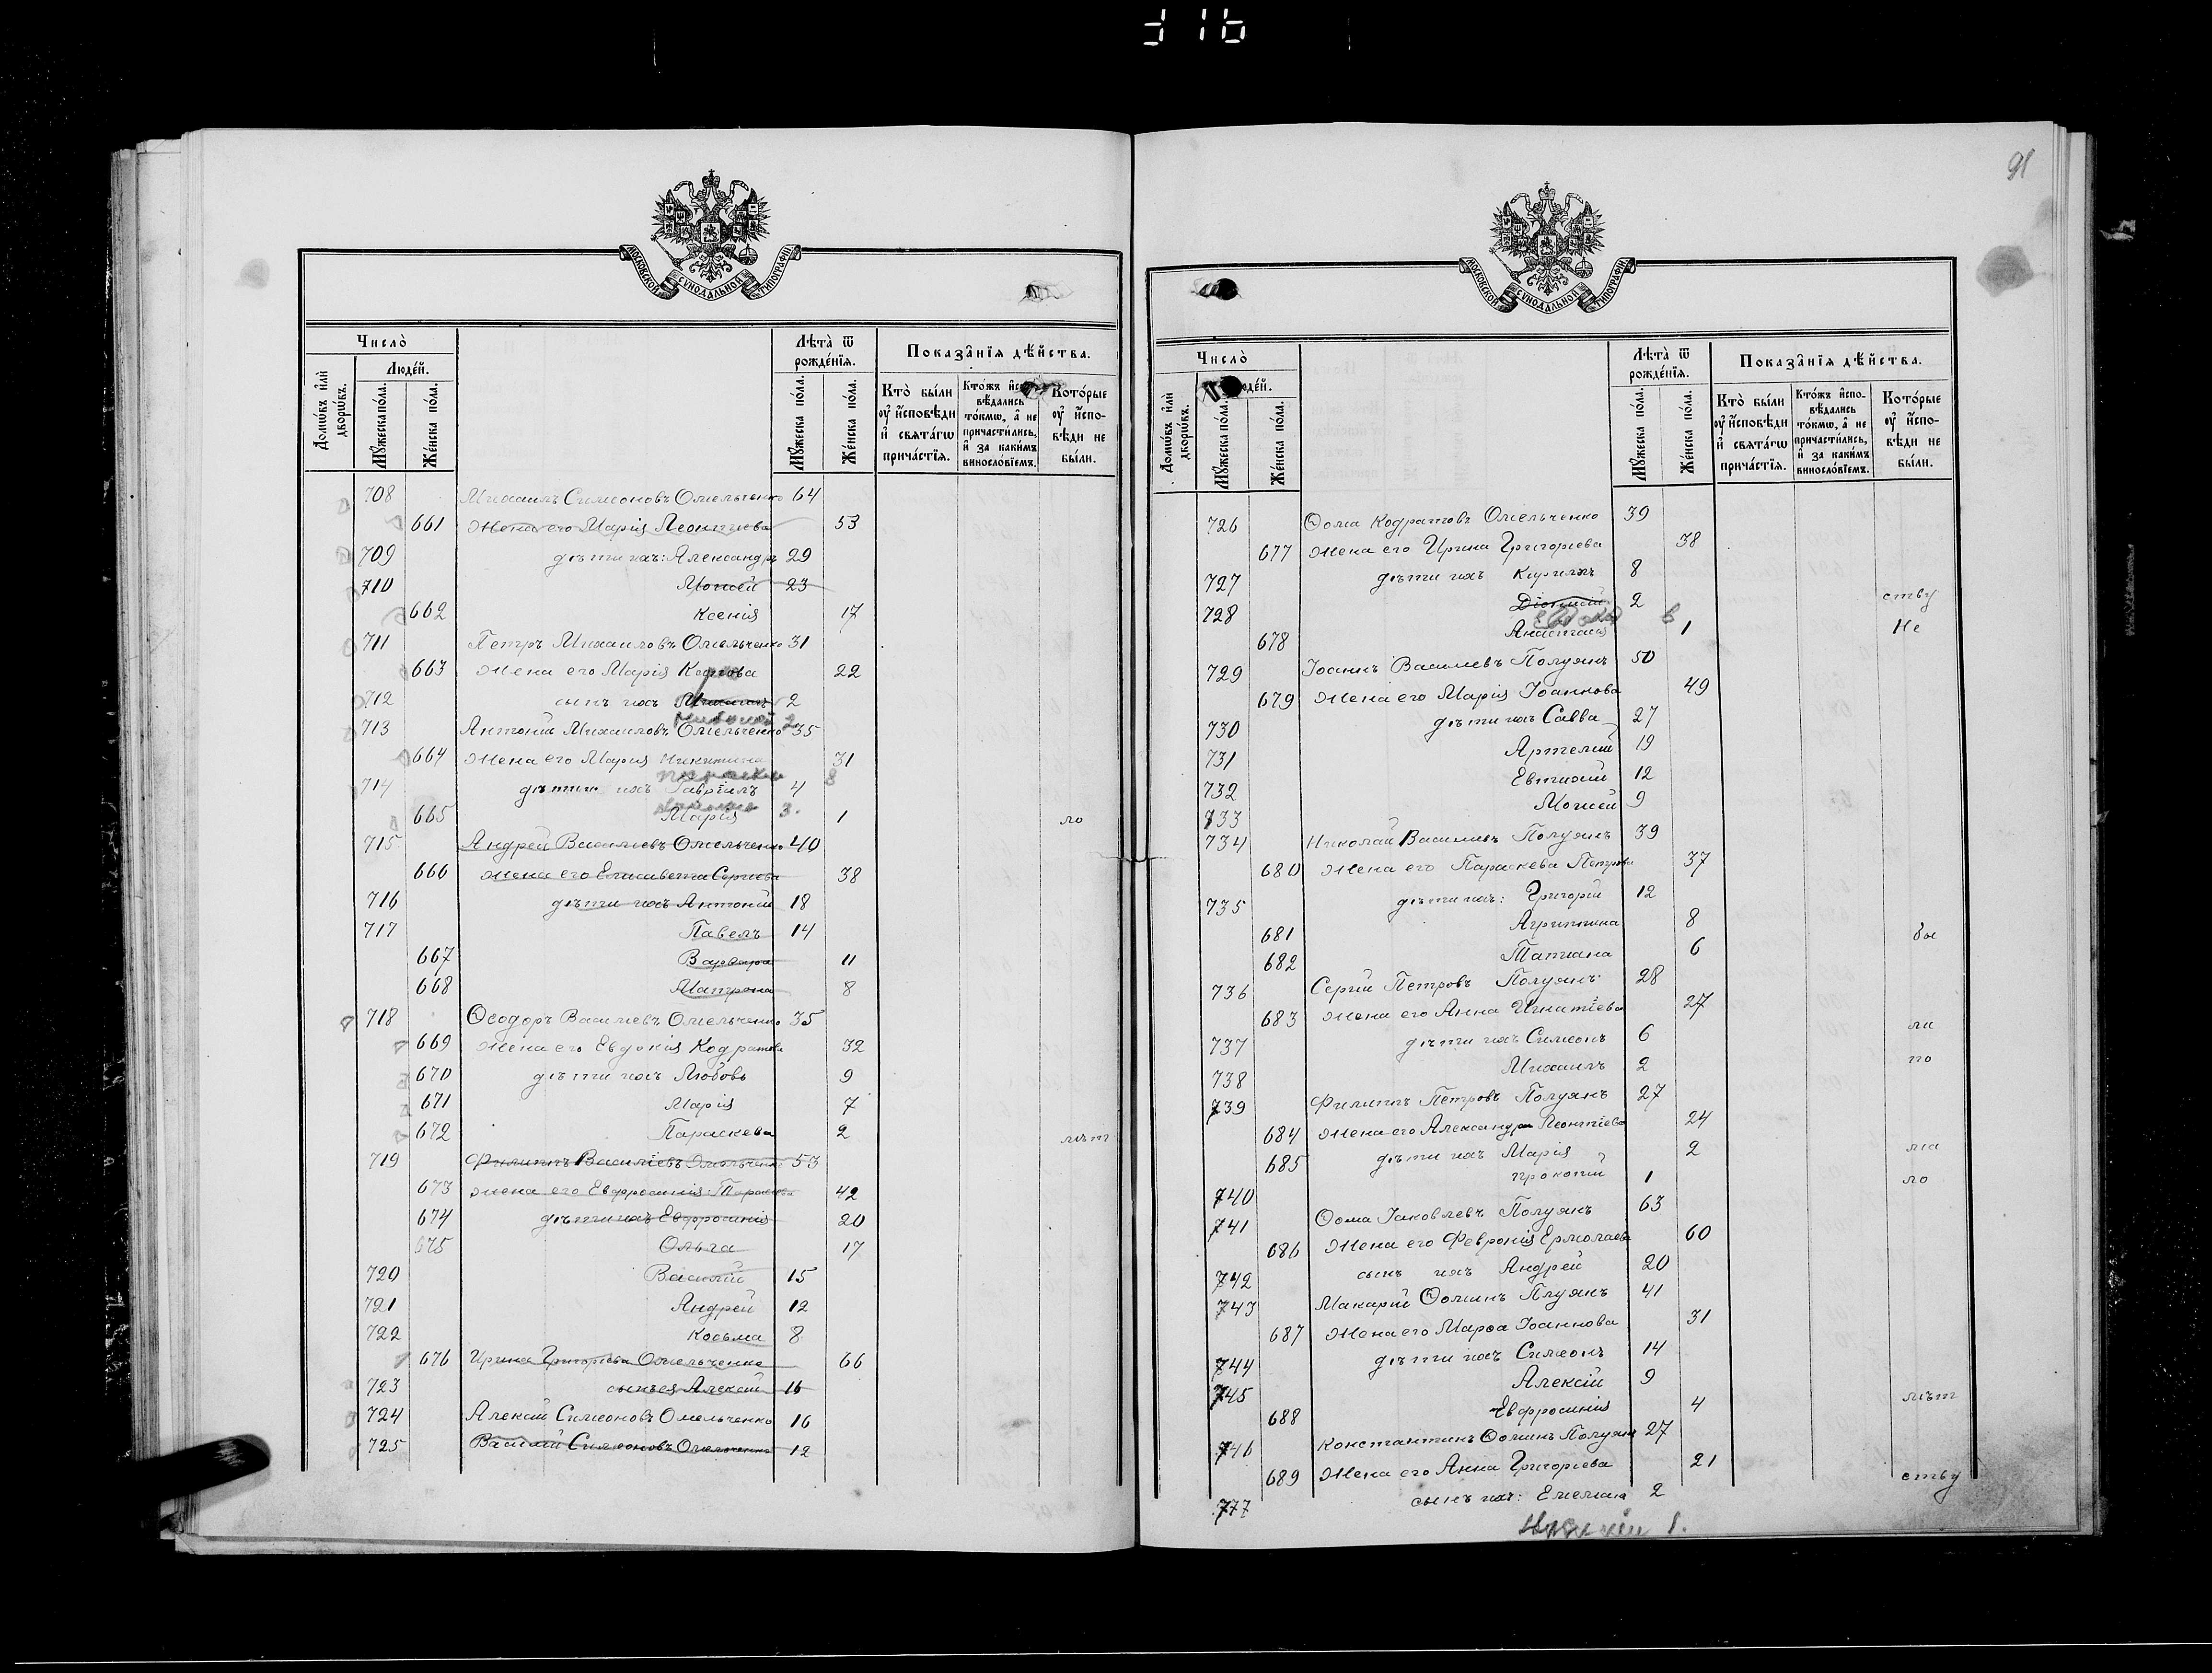 91
МОСКОВСКОЙ СѴНОДАЛЬНОЙ ТИПОГРАФІИ
Число̀
Люде́й.
Домѡ́въ и҆лѝ дворѡ́въ.
Мꙋ́жеска по́ла.
Же́нска по́ла.
Лѣ́та ѿ рожде́нїѧ.
Мꙋ́жеска по́ла.
Же́нска по́ла.
Показа̂нїѧ дѣ́йства.
Кто̀ бы́ли ᲂу҆ и҆́сповѣди и҆ свѧта́гѡ прича́стїѧ.
Кто́жъ и҆сповѣ́дались то́кмѡ, а҆ не причасти́лись, и҆ за каки́мъ виносло́вїемъ.
Кото́рые ᲂу҆ и҆́сповѣди не бы́ли.
708 Михаилъ Симеоновъ Омельченко 64
661 Жена его Марія Леонтіева 53
709 дѣти ихъ: Александръ 29
710 Моисей 23
662 Ксенія 17
711 Петръ Михаиловъ Омельченко 31
663 Жена его Марія Карпова 22
712 сынъ ихъ Михаилъ 2
713 Антоній Михаиловъ Омельченко 35
664 Жена его Марія Никитина 31
714 дѣти ихъ Гавріилъ 4 8
665 Марія 3. 1 ло
715 Андрей Василіевъ Омельченко 40
666 Жена его Елисавета Сергіева 38
716 дѣти ихъ Антоній 18
717 Павелъ 14
667 Варвара 11
668 Матрона 8
718 Ѳеодоръ Василіевъ Омельченко 35
669 Жена его Евдокія Кодратова 32
670 дѣти ихъ Любовь 9
671 Марія 7
672 Параскева 2 лѣт
719 Филиппъ Василіевъ Омельченко 53
673 Жена его Евфросинія Тарасіева 42
674 дѣти ихъ Евфросинія 20
675 Ольга 17
720 Василій 15
721 Андрей 12
722 Косьма 8
676 Ирина Григоріева Омельченко 66
723 сынъ ея Алексій 16
724 Алексій Симеоновъ Омельченко 16
725 Василій Симеоновъ Омельченко 12
МОСКОВСКОЙ СѴНОДАЛЬНОЙ ТИПОГРАФІИ
Число̀
Люде́й.
Домѡ́въ и҆лѝ дворѡ́въ.
Мꙋ́жеска по́ла.
Же́нска по́ла.
Лѣ́та ѿ рожде́нїѧ.
Мꙋ́жеска по́ла.
Же́нска по́ла.
Показа̂нїѧ дѣ́йства.
Кто̀ бы́ли ᲂу҆ и҆́сповѣди и҆ свѧта́гѡ прича́стїѧ.
Кто́жъ и҆сповѣ́дались то́кмѡ, а҆ не причасти́лись, и҆ за каки́мъ виносло́вїемъ.
Кото́рые ᲂу҆ и҆́сповѣди не бы́ли.
726 Ѳома Кодратовъ Омельченко 39
677 Жена его Ирина Григоріева 38
727 дѣти ихъ Кириллъ 8
728 Діонисій 2 ству
678 Анастасія 1 Не
729 Іоаннъ Василіевъ Полуянъ 50
679 Жена его Марія Іоаннова 49
730 дѣти ихъ Савва 27
731 Артемій 19
732 Евтихій 12
733 Моисей 9
734 Николай Василіевъ Полуянъ 39
680 Жена его Параскева Петрова 37
735 дѣти ихъ: Григорій 12
681 Агриппина 8 бы
682 Татіана 6
736 Сергій Петровъ Полуянъ 28
683 Жена его Анна Игнатіева 27
737 дѣти ихъ Симеонъ 6 ли
738 Михаилъ 2 по
739 Филиппъ Петровъ Полуянъ 27
684 Жена его Александра Леонтіева 24
685 дѣти ихъ Марія 2 ма
740 Прокопій 1 ло
741 Ѳома Іаковлевъ Полуянъ 63
686 Жена его Февронія Ермолаева 60
742 сынъ ихъ Андрей 20
743 Макарій Ѳоминъ Плуянъ 41
687 Жена его Марѳа Іоаннова 31
744 дѣти ихъ Симеонъ 14
745 Алексій 9
688 Евфросинія 4 лѣт
746 Константинъ Ѳоминъ Полуянъ 27
689 Жена его Анна Григоріева 21
777 сынъ ихъ: Емельянъ 2 ству
1.